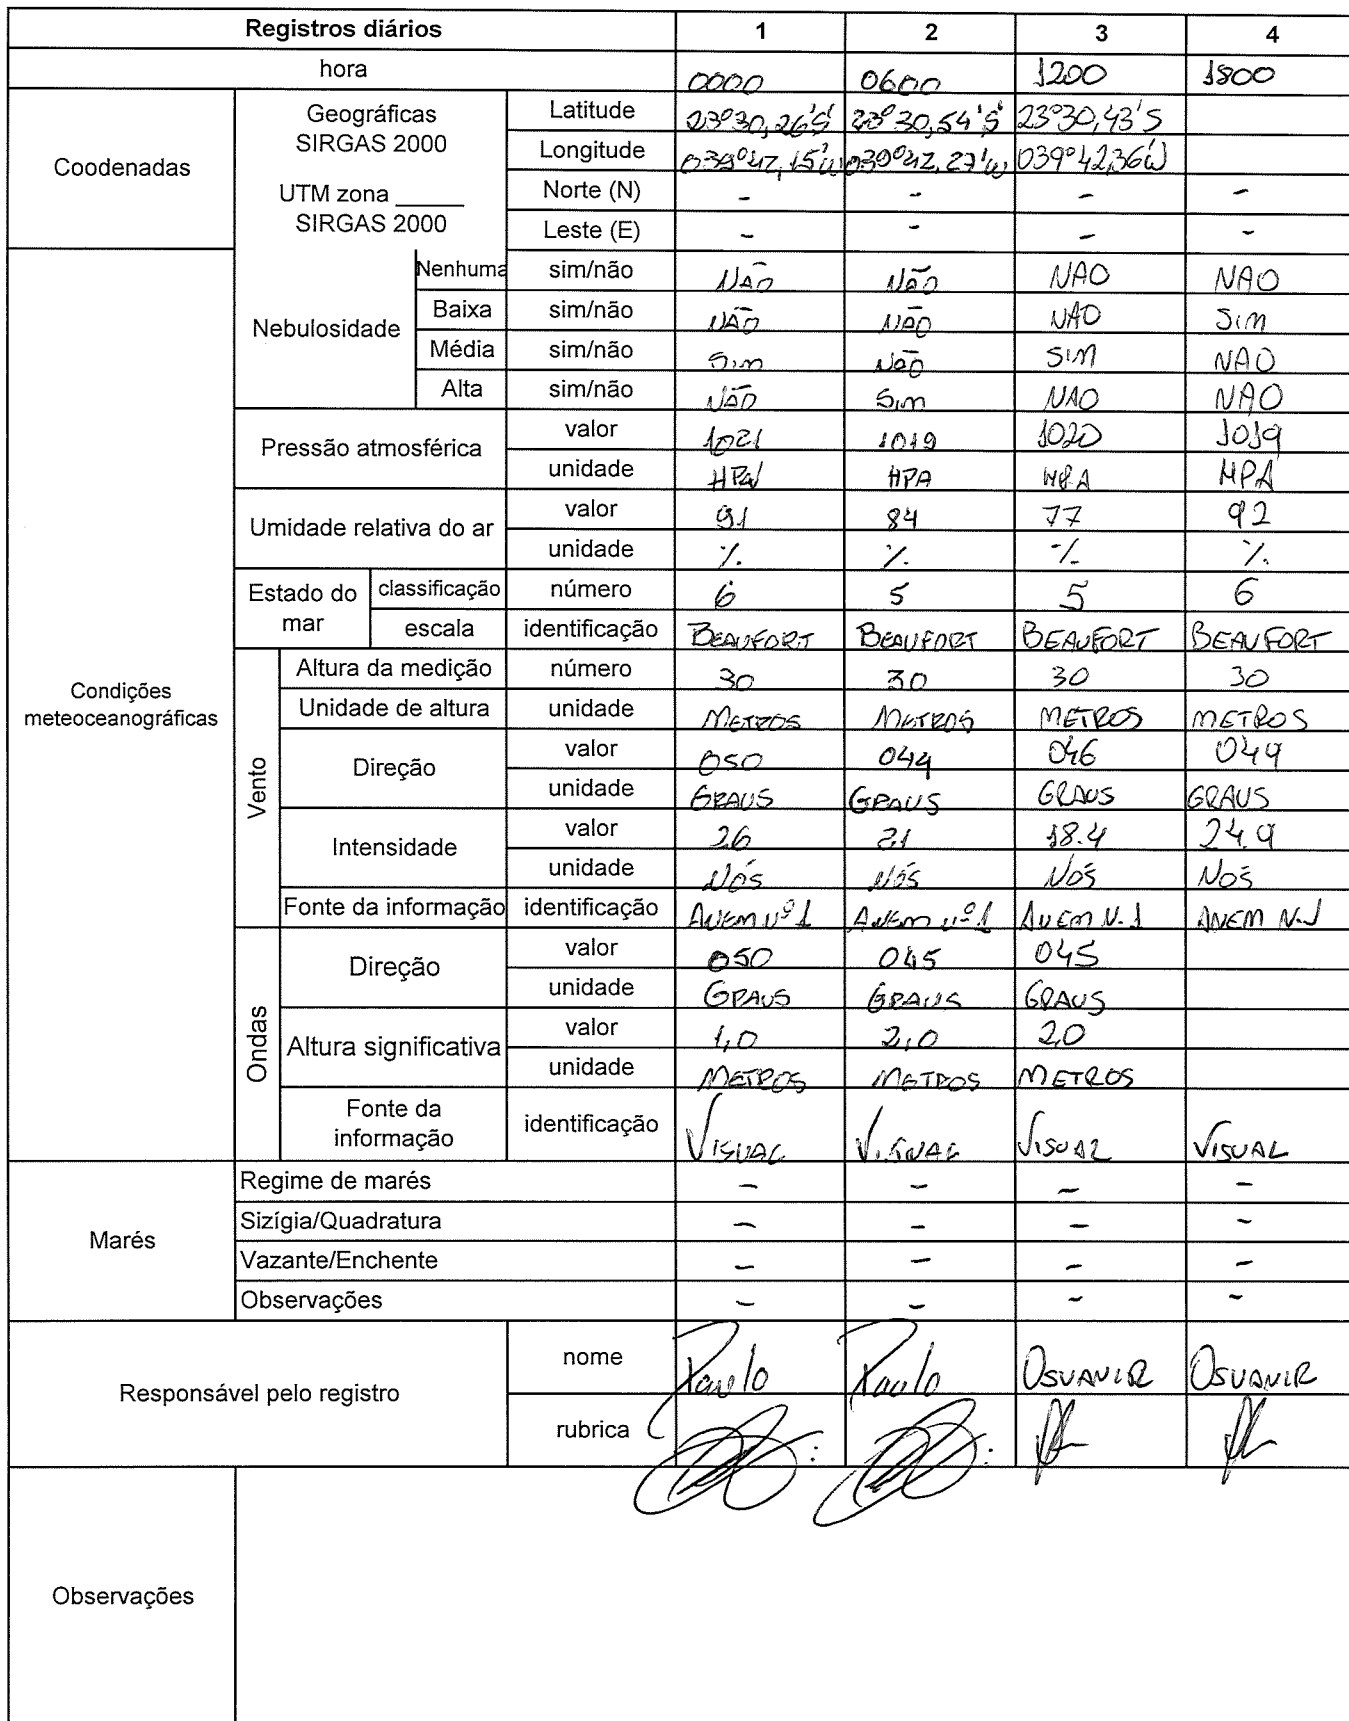 Registros diários 1 2 3 4
hora 0000 0600 1200 1800
Coodenadas
Geográficas
SIRGAS 2000
UTM zona _____
SIRGAS 2000
Latitude 23°30,26'S 23°30,54'S 23°30,43'S
Longitude 039°42,15'W 039°42,27'W 039°42,36'W
Norte (N) - - - -
Leste (E) - - - -
Condições
meteoceanográficas
Nebulosidade
Nenhuma sim/não NÃO NÃO NAO NAO
Baixa sim/não NÃO NÃO NAO SIM
Média sim/não SIM NÃO SIM NAO
Alta sim/não NÃO SIM NAO NAO
Pressão atmosférica
valor 1021 1019 1020 1019
unidade HPA HPA HPA HPA
Umidade relativa do ar
valor 91 84 77 92
unidade % % % %
Estado do
mar
classificação número 6 5 5 6
escala identificação BEAUFORT BEAUFORT BEAUFORT BEAUFORT
Vento
Altura da medição número 30 30 30 30
Unidade de altura unidade METROS METROS METROS METROS
Direção
valor 050 044 046 049
unidade GRAUS GRAUS GRAUS GRAUS
Intensidade
valor 26 21 18.4 24.9
unidade NÓS NÓS NÓS NÓS
Fonte da informação identificação ANEM Nº 1 ANEM Nº 1 ANEM N.1 ANEM N.1
Ondas
Direção
valor 050 045 045
unidade GRAUS GRAUS GRAUS
Altura significativa
valor 1,0 2,0 2,0
unidade METROS METROS METROS
Fonte da
informação
identificação VISUAL VISUAL VISUAL VISUAL
Marés
Regime de marés - - - -
Sizígia/Quadratura - - - -
Vazante/Enchente - - - -
Observações - - - -
Responsável pelo registro
nome Paulo Paulo OSVANIR OSVANIR
rubrica
Observações